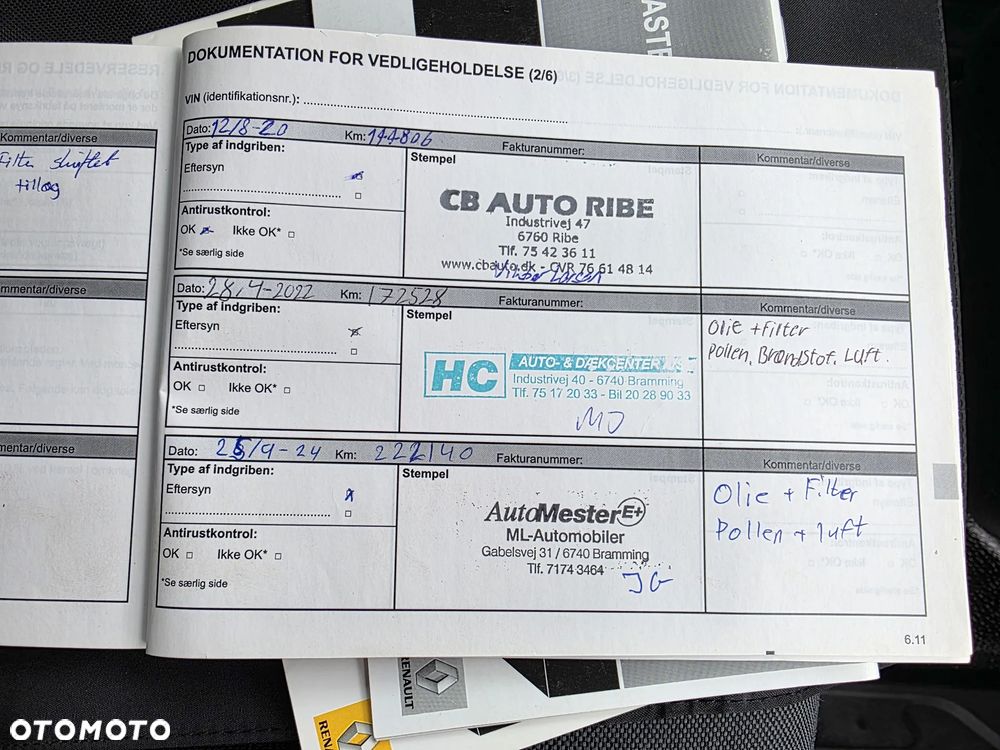 Kommentar/diverse
Filter skiftet
tillæg
mmentar/diverse
mentar/diverse
DOKUMENTATION FOR VEDLIGEHOLDELSE (2/6)
VIN (identifikationsnr.):
Dato: 12/8-20 Km: 144806 Fakturanummer: Kommentar/diverse
Type af indgriben:
Eftersyn
Antirustkontrol:
OK Ikke OK*
*Se særlig side
Stempel
CB AUTO RIBE
Industrivej 47
6760 Ribe
Tlf. 75 42 36 11
www.cbauto.dk - CVR 76 61 48 14
Dato: 28/4-2022 Km: 172528 Fakturanummer: Kommentar/diverse
Type af indgriben:
Eftersyn
Antirustkontrol:
OK Ikke OK*
*Se særlig side
Stempel
HC AUTO- & DÆKCENTER
Industrivej 40 - 6740 Bramming
Tlf. 75 17 20 33 - Bil 20 28 90 33
MJ
Olie + Filter
Pollen, Brændstof, Luft.
Dato: 25/9-24 Km: 222140 Fakturanummer: Kommentar/diverse
Type af indgriben:
Eftersyn
Antirustkontrol:
OK Ikke OK*
*Se særlig side
Stempel
AutoMester E+
ML-Automobiler
Gabelsvej 31 / 6740 Bramming
Tlf. 7174 3464
JG
Olie + Filter
Pollen + luft
6.11
RENAULT
OTOMOTO